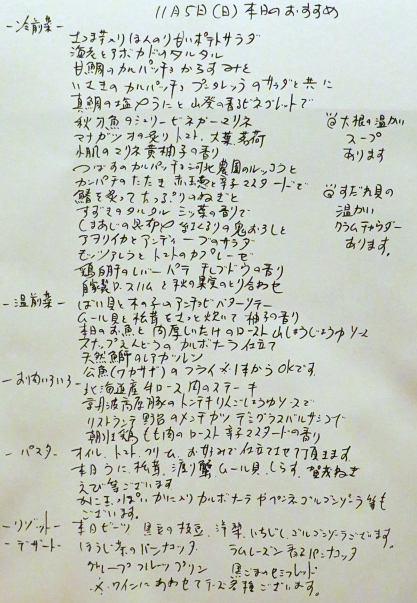 11月5日(日) 本日のおすすめ
-冷前菜-
さつま芋入りほんのり甘いポテトサラダ
海老とアボカドのタルタル
甘鯛のカルパッチョ からすみと
いさきのカルパッチョ プンタレッラのサラダと共に
真鯛の塩〆うにと山葵の香るビネグレットで
秋刀魚のシェリービネガーマリネ
マナガツオの炙り トマト、大葉、茗荷
小肌のマリネ 黄柚子の香り
つばすのカルパッチョ 河北農園のルッコラと
カンパチのたたき 赤玉葱と辛子マスタードで
鰆を炙って たっぷりのねぎと
すずきのタルタル 三つ葉の香りで
しまあじの昆布〆 の鬼おろしと
アオリイカとアンディーブのサラダ
モッツァレラとトマトのカプレーゼ
鶏胡肝のレバーパテ 干しブドウの香り
自家製ロースハムと秋の果実のとり合わせ
◎大根の温かい
スープ
あります
◎すだれ貝の
温かい
クラムチャウダー
あります。
-温前菜-
ばい貝と木の子のアンチョビバターソテー
ムール貝と松茸をさっと焼いて 柚子の香り
本日のお魚と肉厚しいたけのロースト 山しょうじょうゆソース
スナップえんどうのカルボナーラ仕立て
天然鰤の
公魚(ワカサギ)のフライ ※1本からOKです
-お肉いろいろ-
北海道産牛ロース肉のステーキ
京丹波高原豚のトンテキ りんごしょうゆソースで
リストランテ野呂のメンチカツ デミグラスバルサミコで
朝引き鶏もも肉のロースト 辛子マスタードの香り
-パスタ-
オイル、トマト、クリーム、お好みで仕立てさせて頂きます
本日うに、松茸、渡り蟹、ムール貝、しらす、賀茂ねぎ
えび等ございます
かにみそ かに入りカルボナーラやペンネゴルゴンゾーラ等も
ございます。
-リゾット-
本日ビーツ 黒豆の枝豆、渋栗、いちじく、ゴルゴンゾーラございます。
-デザート-
ほうじ茶のパンナコッタ ラムレーズン香るパンナコッタ
グレープフルーツプリン 黒ごまのセミフレッド
※ワインにあわせてチーズ各種ございます。